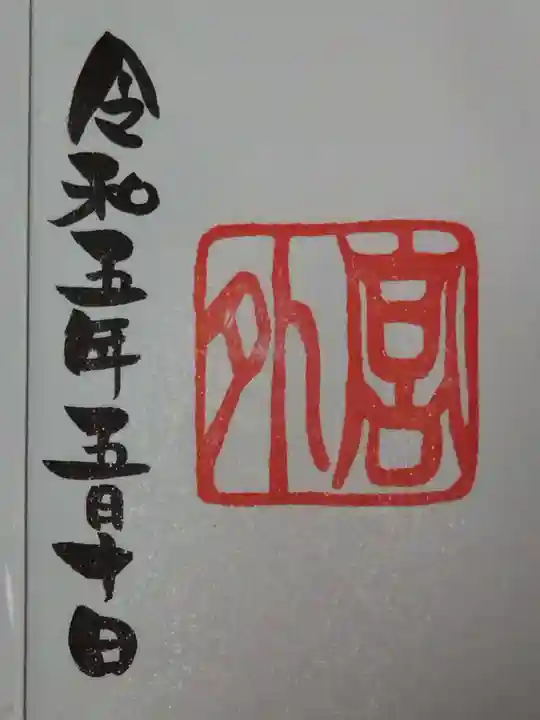 宮外
令和五年五月十日